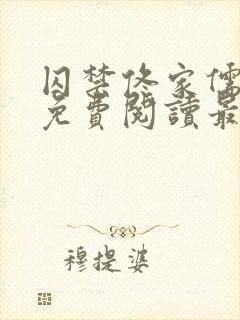 囚禁佟家儒
免費閱讀最
穆提婆